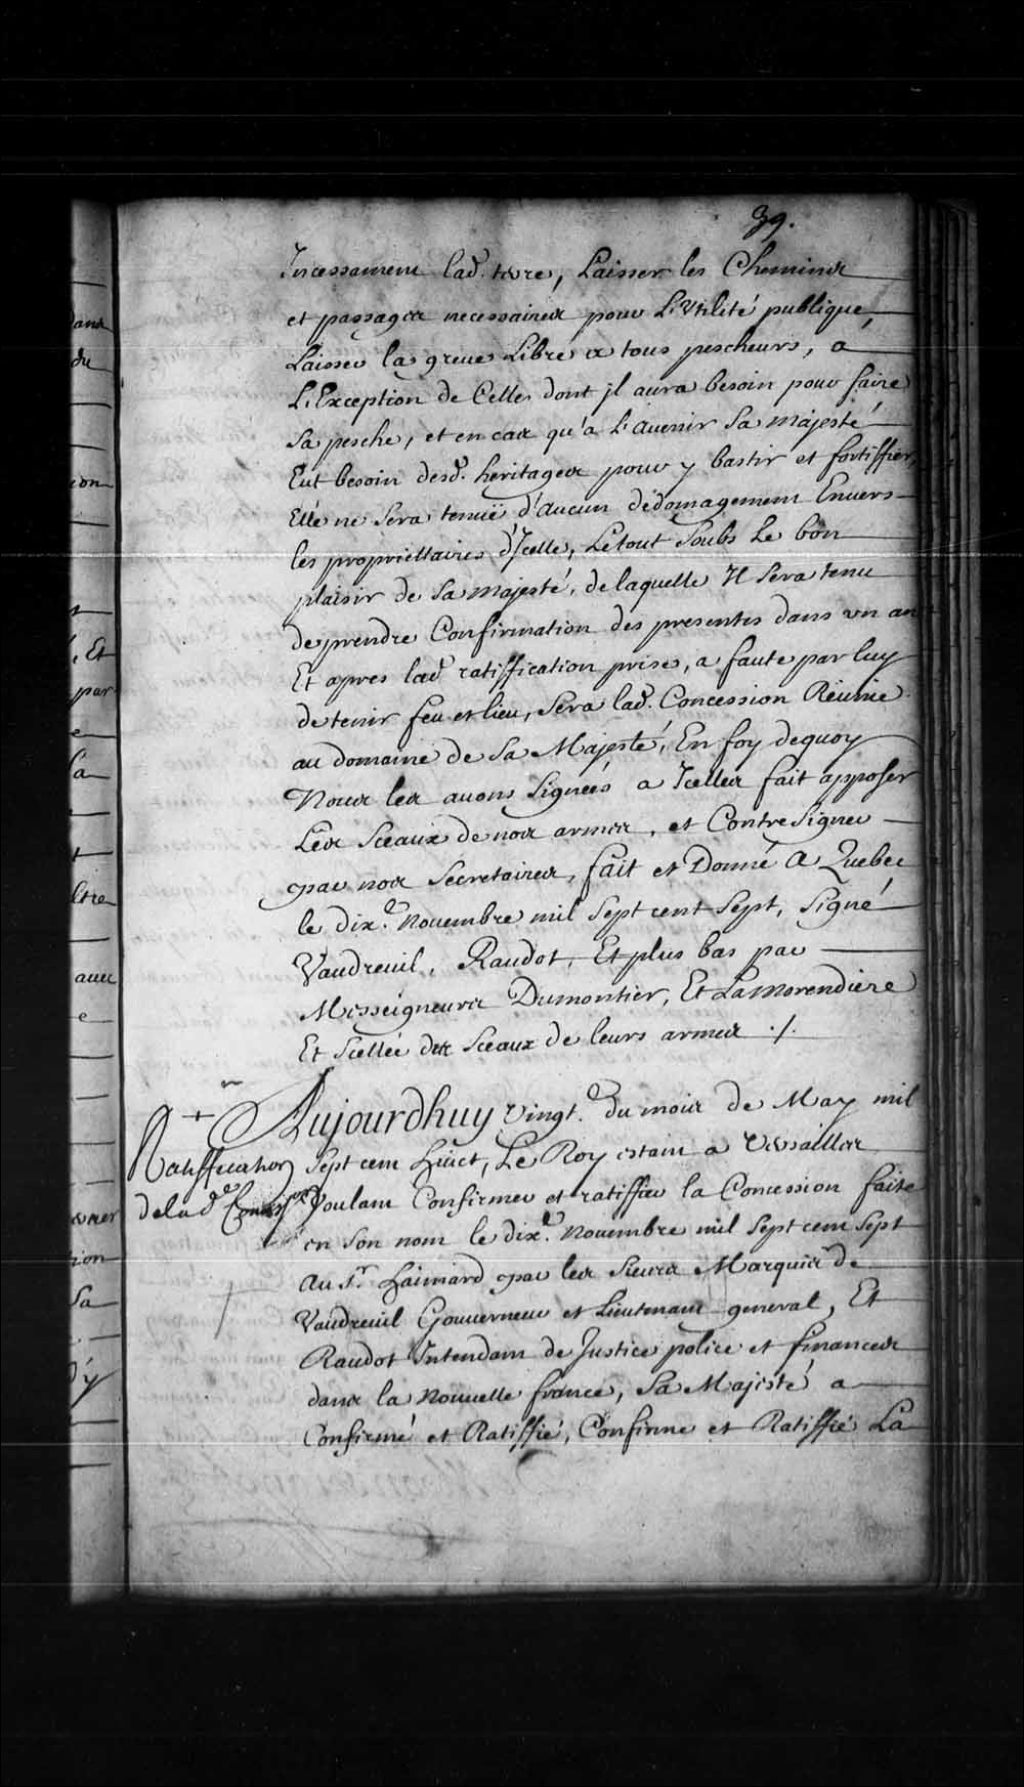 39.
Incessament lad. terre, Laisser les Chemins
et passages necessaires pour L'Vtilité publique,
Laisser la greve Libre a tous pescheurs, a
L'Exception de Celle dont jl aura besoin pour faire
Sa pesche, et en cas qu'a L'avenir Sa Majesté
Eut besoin desd. heritages pour y bastir et fortiffier,
Elle ne Sera tenuë d'Aucun dédomagement Envers
les propriettaires d'Jcelle, Le tout Soubs Le bon
plaisir de Sa Majesté, de laquelle Il Sera tenu
de prendre Confirmation des presentes dans vn an
Et apres lad. ratiffication prise, a faute par luy
de tenir feu et lieu, Sera lad. Concession Réunie
au domaine de Sa Majesté, En foy dequoy
Nous les avons Signées a Jcelles fait apposer
Les Sceaux de nos armes, et Contre Signer
par nos Secretaires, fait et Donné A Quebec
le dix.e Novembre mil Sept cent Sept, Signé
Vaudreuil, Raudot, Et plus bas par
Messeigneurs Dumontier, Et Lamorendiere
Et Scellée des Sceaux de leurs armes ./.
+
Ratiffication
de la d.e
Aujourdhuy Vingt.e du mois de May mil
Sept cent huict, Le Roy estant a Versailles
Voulant Confirmer et ratiffier la Concession faite
en Son nom le dix.e Novembre mil Sept cent Sept
Au S.r haimard par les Sieurs Marquis de
Vaudreuil Gouverneur et Lieutenant general, Et
Raudot Intendant de Justice police et finances
dans la Nouvelle france, Sa Majesté a
Confirmé et Ratiffié, Confirme et Ratiffie La
dans
du
Et
par
e
Sa
ltre
avec
e
Sa